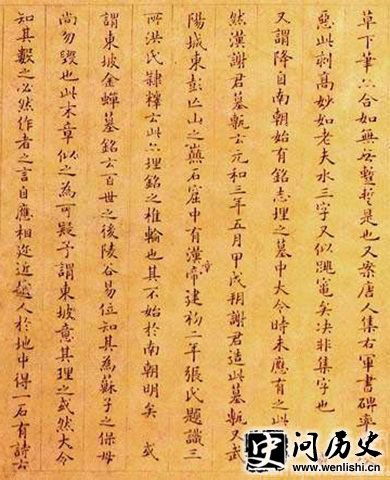 草下筆亦合如無蹔是也又案唐人集右軍書碑率
惡此刻高妙如老夫水三字又似跳竈矣决非集字也
又謂降自南朝始有銘志埋之墓中大令時未應有之此
然漢謝君墓甎云元和三年五月甲戌朔謝君造此墓甎又武
陽城東彭亡山之巔石窟中有漢章帝建初二年張氏題識三
所洪氏隸釋云此亦埋銘之椎輪也其不始於南朝明矣 或
謂東坡金蟬墓銘云百世之後陵谷易位知其為蘇子之保母
尚勿毀也此末章似之為可疑予謂東坡意其理之或然大令
知其數之必然作者之言自應相邇近越人於地中得一石有詩云
问历史
www.wenlishi.cn